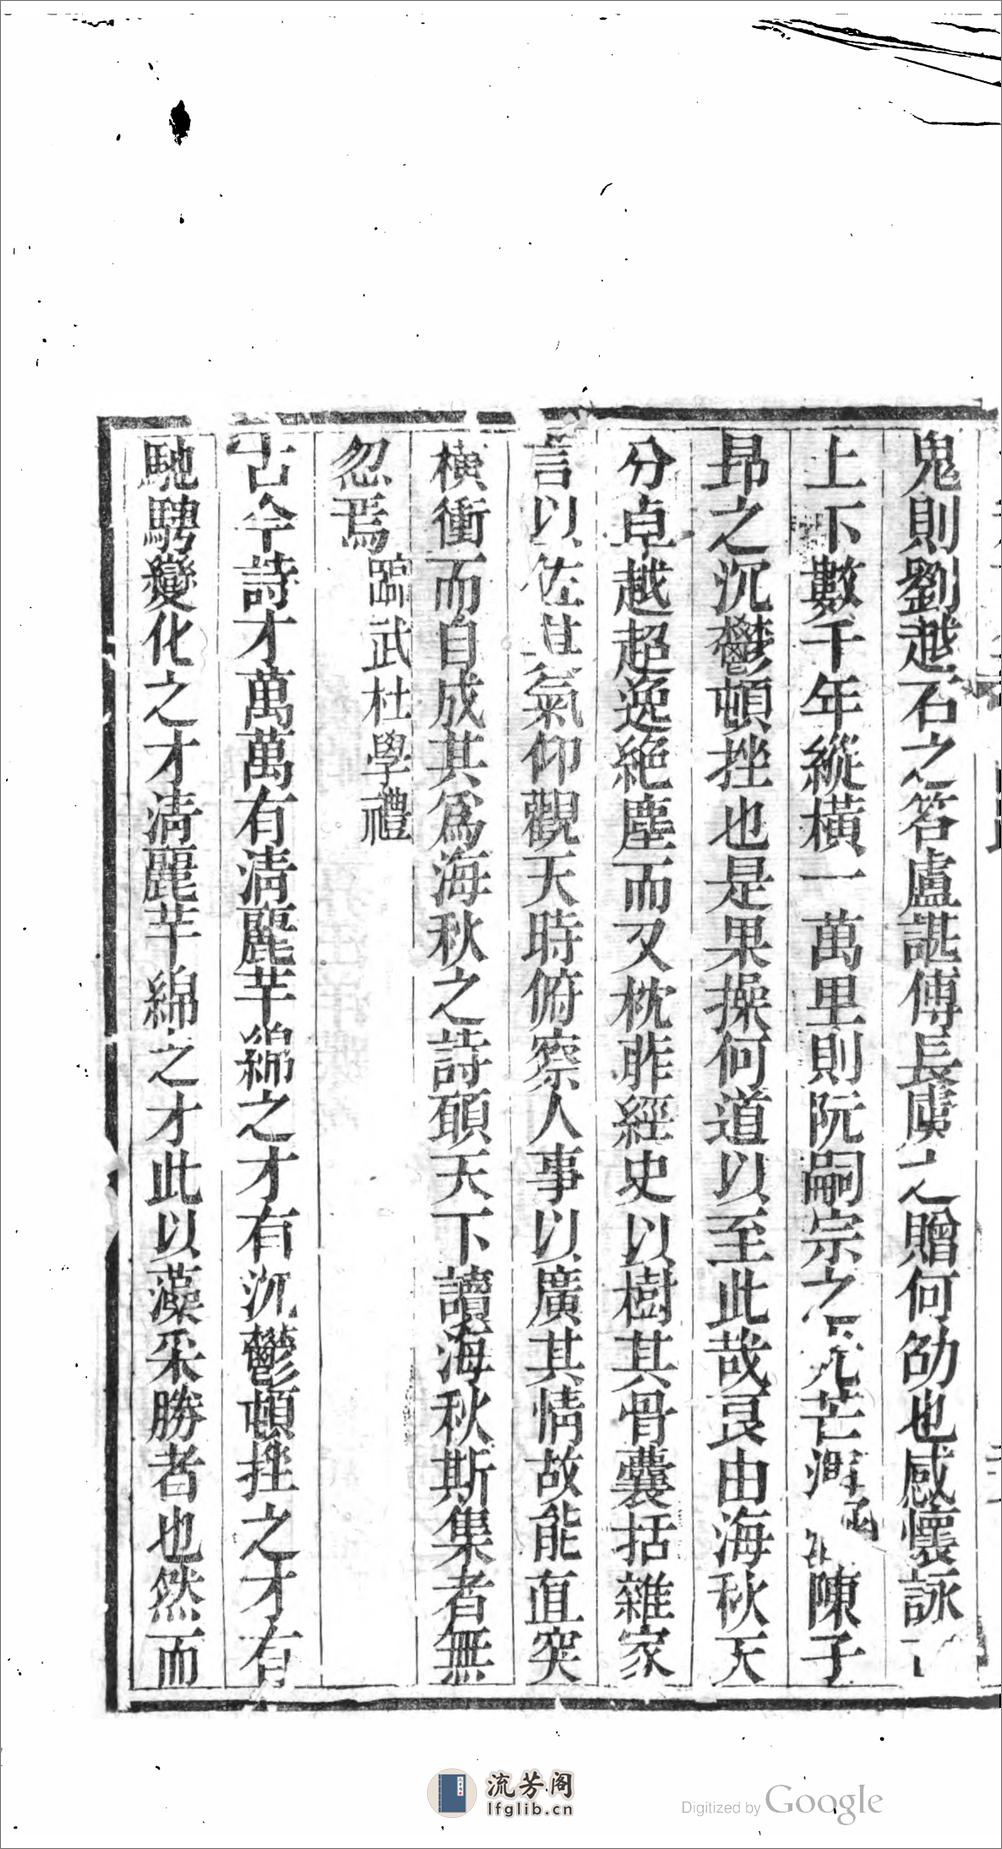 鬼則劉越石之答盧諶傅長虞之贈何劭也感懷詠
上下數千年縱橫一萬里則阮嗣宗之芒陳子
昂之沉鬱頓挫也是果操何道以至此哉良由海秋天
分卓越超逸絕塵而又枕胙經史以樹其骨囊括雜家
言以佐其氣仰觀天時俯察人事以廣其情故能直突
橫衝而自成其為海秋之詩頤天下讀海秋斯集者無
忽焉 蹋武杜學禮
古今詩才萬萬有淸麗芊綿之才有沉鬱頓挫之才有
馳騁變化之才淸麗芊綿之才此以藻采勝者也然而
流芳阁
lfglib.cn
Digitized by Google